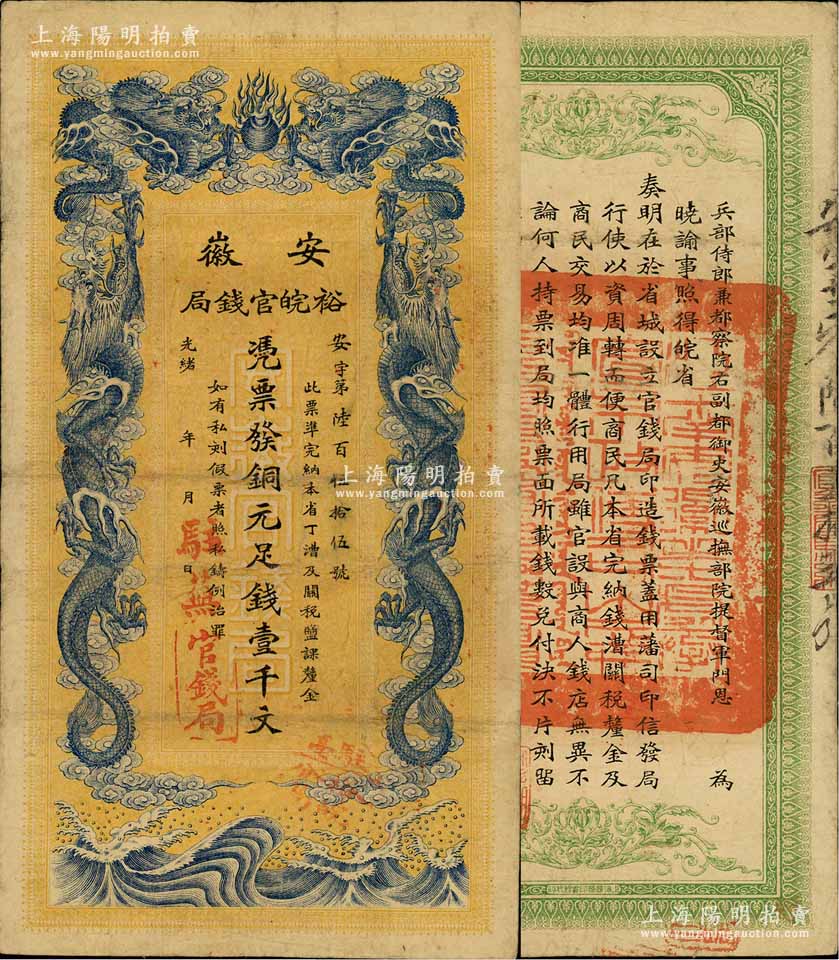 上海陽明拍賣
www.yangmingauction.com
安徽
裕皖官錢局
安字第陸百 拾伍號
此票準完納本省丁漕及關稅鹽課釐金
憑票發銅元足錢壹千文
如有私刻假票者照私鑄例治罪
光緒 年 月 日
駐蕪官錢局
上海陽明拍賣
www.yangmingauction.com
兵部侍郎兼都察院右副都御史安徽巡撫部院提督軍門恩 為
曉諭事照得皖省
奏明在於省城設立官錢局印造錢票蓋用藩司印信發局
行使以資周轉而便商民凡本省完納錢漕關稅釐金及
商民交易均准一體行用局雖官設與商人錢店無異不
論何人持票到局均照票面所載錢數兌付決不片刻留
上海陽明拍賣
www.yangmingauction.com